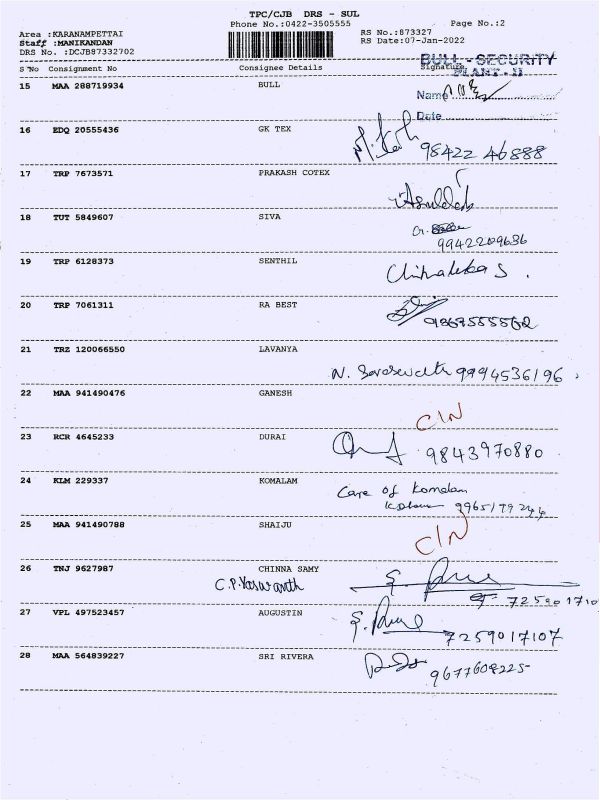 TPC/CJB DRS - SUL
Phone No.:0422-3505555 Page No.:2
Area :KARANAMPETTAI RS No.:873327
Staff :MANIKANDAN RS Date:07-Jan-2022
DRS No. :DCJB87332702
BULL - SECURITY
PLANT - II
S No Consignment No Consignee Details Signature
15 MAA 288719934 BULL
Name
Date
16 EDQ 20555436 GK TEX
98422 46888
17 TRP 7673571 PRAKASH COTEX
18 TUT 5849607 SIVA
9942209636
19 TRP 6128373 SENTHIL
20 TRP 7061311 RA BEST
21 TRZ 120066550 LAVANYA
9994536196
22 MAA 941490476 GANESH
C/N
23 RCR 4645233 DURAI
9843970880
24 KLM 229337 KOMALAM
Care of Komalam
25 MAA 941490788 SHAIJU
C/N
26 TNJ 9627987 CHINNA SAMY
C.P.Yaswanth
27 VPL 497523457 AUGUSTIN
7259017107
28 MAA 564839227 SRI RIVERA